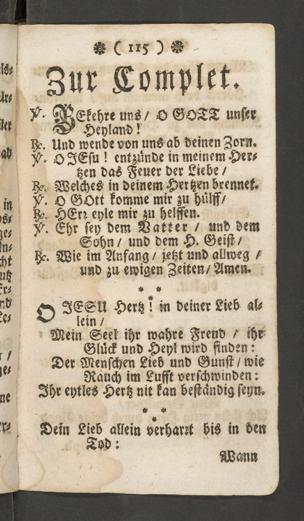 ( 115 )
Zur Complet.
℣. BEkehre uns / O GOTT unser
Heyland!
℟. Und wende von uns ab deinen Zorn.
℣. O JEsu! entzünde in meinem Her-
tzen das Feuer der Liebe /
℟. Welches in deinem Hertzen brennet.
℣. O GOtt komme mir zu hülff /
℟. HErz eyle mir zu helffen.
℣. Ehr sey dem Vatter / und dem
Sohn / und dem H. Geist /
℟. Wie im Anfang / jetzt und allweg /
und zu ewigen Zeiten / Amen.
* * *
O JESU Hertz! in deiner Lieb al-
lein /
Mein Seel ihr wahre Freud / ihr
Glück und Heyl wird finden:
Der Menschen Lieb und Gunst / wie
Rauch im Lufft verschwinden:
Ihr eytles Hertz nit kan beständig seyn.
* * *
Dein Lieb allein verharzt bis in den
Tod:
Wann